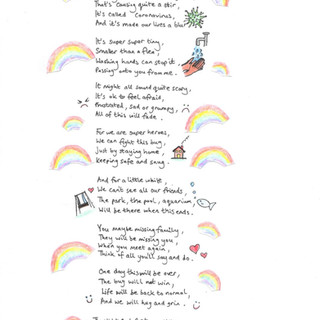 That's causing quite a stir,
It's called coronavirus,
And it's made our lives a blur.
It's super super tiny,
Smaller than a flea,
Washing hands can stop it
Passing onto you from me.
It might all sound quite scary,
It's ok to feel afraid,
Frustrated, sad or grumpy,
All of this will fade.
For we are super heroes,
We can fight this bug,
Just by staying home,
Keeping safe and snug.
And for a little while
We can't see all our friends,
The park, the pool, aquarium,
Will be there when this ends.
You maybe missing family,
They will be missing you,
When you meet again,
Think of all you'll say and do.
One day this will be over,
The bug will not win,
Life will be back to normal,
And we will hug and grin.